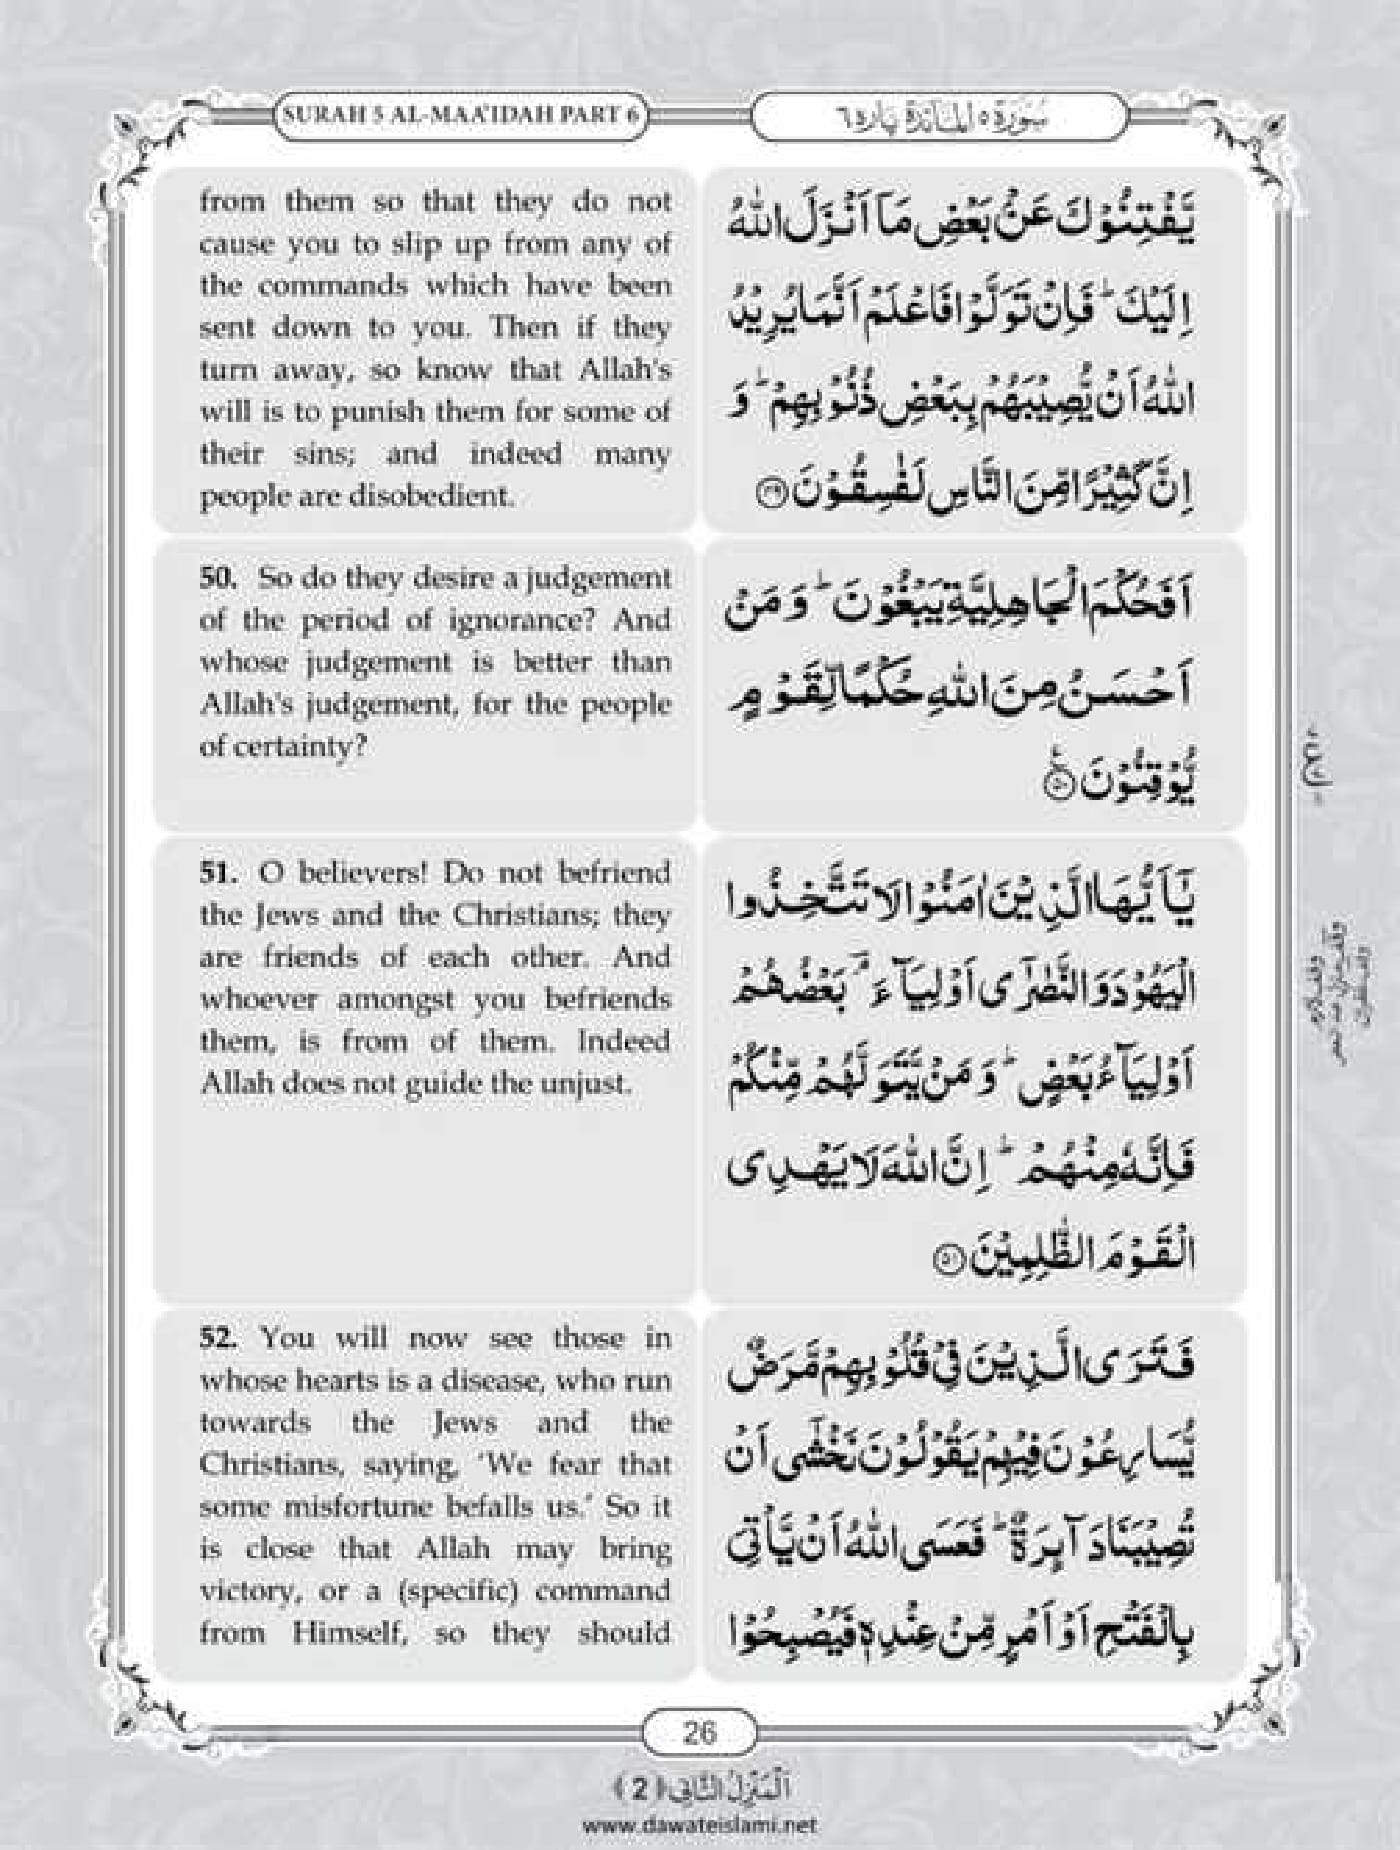 SURAH 5 AL-MAA'IDAH PART 6
سُوۡرَة ٥ الۡمَآئِدَة پاره ٦
from them so that they do not
cause you to slip up from any of
the commands which have been
sent down to you. Then if they
turn away, so know that Allah's
will is to punish them for some of
their sins; and indeed many
people are disobedient.
يَّفْتِنُوْكَ عَنْۢ بَعْضِ مَاۤ اَنْزَلَ اللّٰهُ
اِلَيْكَ ؕ فَاِنْ تَوَلَّوْا فَاعْلَمْ اَنَّمَا يُرِيْدُ
اللّٰهُ اَنْ يُّصِيْبَهُمْ بِبَعْضِ ذُنُوْبِهِمْ ؕ وَ
اِنَّ كَثِيْرًا مِّنَ النَّاسِ لَفٰسِقُوْنَ ۴۹
50. So do they desire a judgement
of the period of ignorance? And
whose judgement is better than
Allah's judgement, for the people
of certainty?
اَفَحُكْمَ الْجَاهِلِيَّةِ يَبْغُوْنَ ؕ وَ مَنْ
اَحْسَنُ مِنَ اللّٰهِ حُكْمًا لِّقَوْمٍ
يُّوْقِنُوْنَ ۵۰
51. O believers! Do not befriend
the Jews and the Christians; they
are friends of each other. And
whoever amongst you befriends
them, is from of them. Indeed
Allah does not guide the unjust.
يٰۤاَيُّهَا الَّذِيْنَ اٰمَنُوْا لَا تَتَّخِذُوا
الْيَهُوْدَ وَ النَّصٰرٰۤى اَوْلِيَآءَ ۘ بَعْضُهُمْ
اَوْلِيَآءُ بَعْضٍ ؕ وَ مَنْ يَّتَوَلَّهُمْ مِّنْكُمْ
فَاِنَّهٗ مِنْهُمْ ؕ اِنَّ اللّٰهَ لَا يَهْدِى
الْقَوْمَ الظّٰلِمِيْنَ ۵۱
52. You will now see those in
whose hearts is a disease, who run
towards the Jews and the
Christians, saying, 'We fear that
some misfortune befalls us.' So it
is close that Allah may bring
victory, or a (specific) command
from Himself, so they should
فَتَرَى الَّذِيْنَ فِىْ قُلُوْبِهِمْ مَّرَضٌ
يُّسَارِعُوْنَ فِيْهِمْ يَقُوْلُوْنَ نَخْشٰۤى اَنْ
تُصِيْبَنَا دَآىِٕرَةٌ ؕ فَعَسَى اللّٰهُ اَنْ يَّاْتِىَ
بِالْفَتْحِ اَوْ اَمْرٍ مِّنْ عِنْدِهٖ فَيُصْبِحُوْا
26
اَلْمَنْزِلُ الثَّانِى ﴿2﴾
www.dawateislami.net